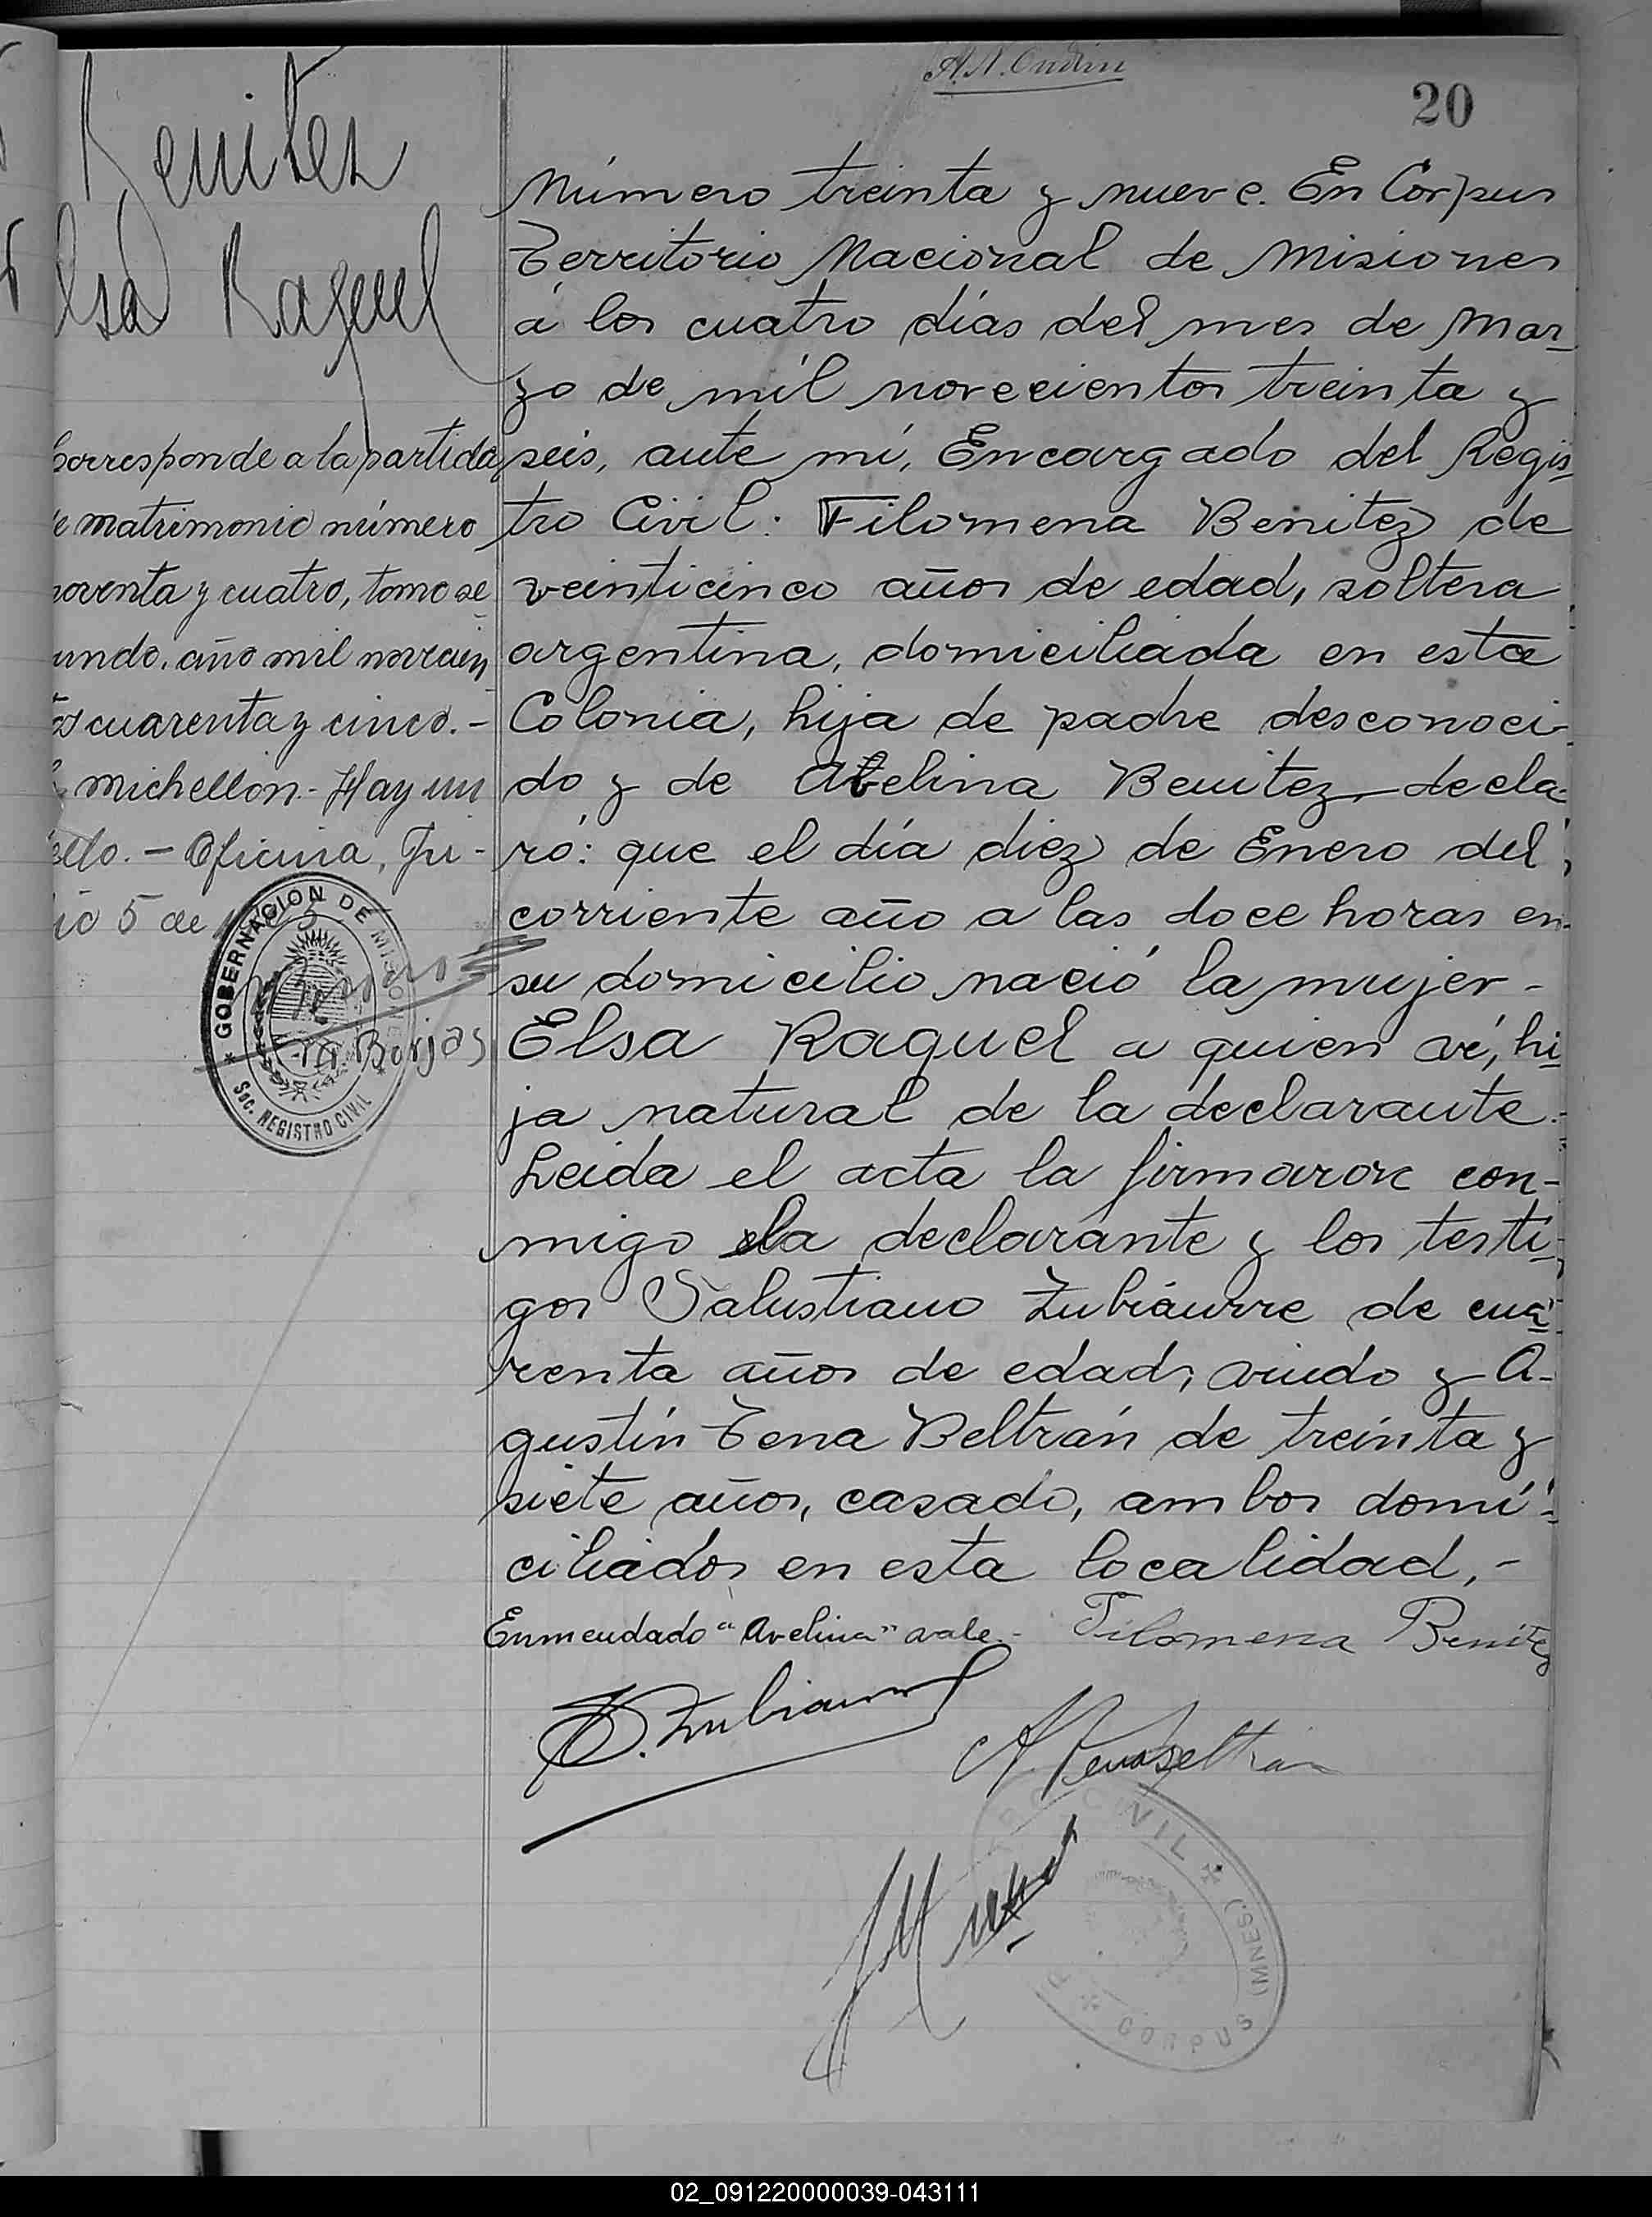 20
Benites
lsa Raquel
Corresponde a la partida
e matrimonio número
noventa y cuatro, tomo se
undo, año mil novecien
tos cuarenta y cinco.-
Michellon.- Hay un
ello.- Oficina, Ju-
lio 5 de
GOBERNACION DE MISIONES
Sec. REGISTRO CIVIL
Borjas
Número treinta y nueve. En Corpus
Territorio Nacional de Misiones
á los cuatro días del mes de Mar-
zo de mil novecientos treinta y
seis, ante mí, Encargado del Regis
tro Civil: Filomena Benitez de
veinticinco años de edad, soltera
argentina, domiciliada en esta
Colonia, hija de padre desconoci-
do y de Avelina Benitez, decla-
ró: que el día diez de Enero del
corriente año a las doce horas en
su domicilio nació la mujer -
Elsa Raquel a quien ví, hi
ja natural de la declarante.-
Leida el acta la firmaron con-
migo la declarante y los testi-
gos Salustiano Zubiaurre de cua-
renta años de edad, viudo y A-
gustín Tena Beltrán de treinta y
siete años, casado, ambos domi-
ciliados en esta localidad.-
Enmendado "Avelina" vale.- Filomena Benitez
S. Zubiaurre
A. Tena Beltran
CIVIL
CORPUS (MNES.)
02_091220000039-043111